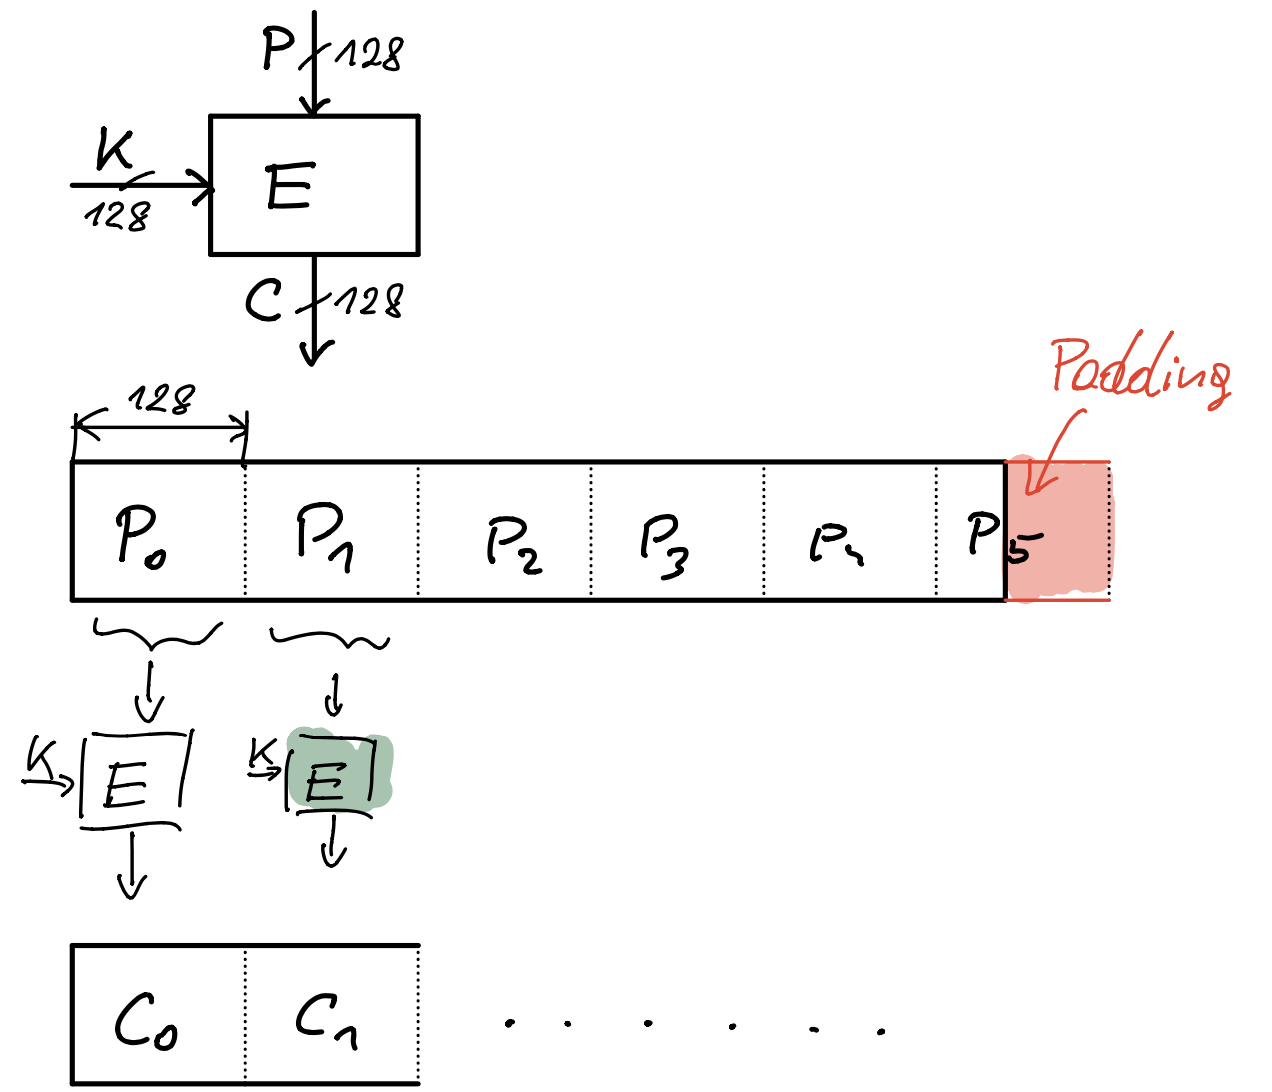 P 128
K
128
E
C 128
Padding
128
P₀ P₁ P₂ P₃ P₄ P₅
K E K E
C₀ C₁ . . . . . .